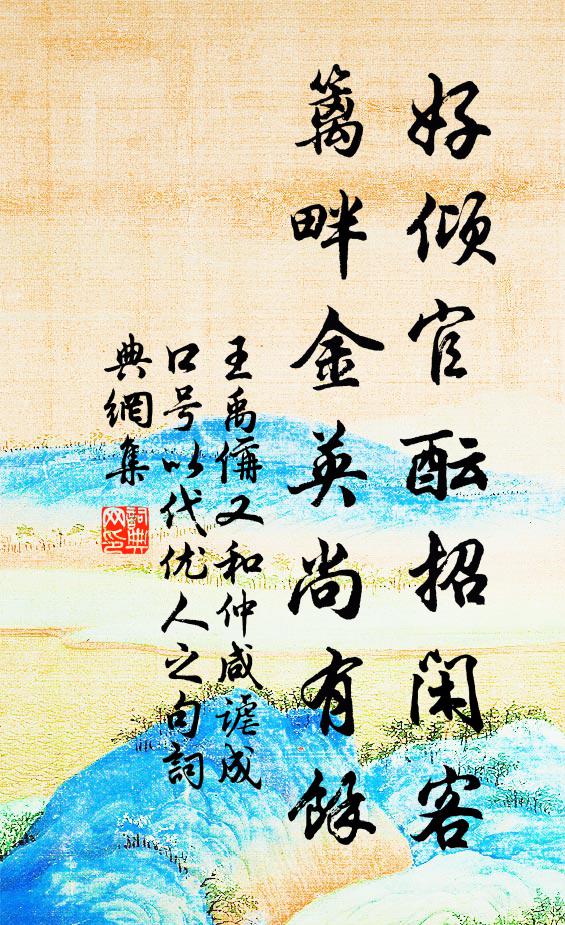 好倾官酝招闲客
篱畔金英尚有馀
王禹偁又和仲咸谑成
口号以代优人之句詞
典網集
詞典网印